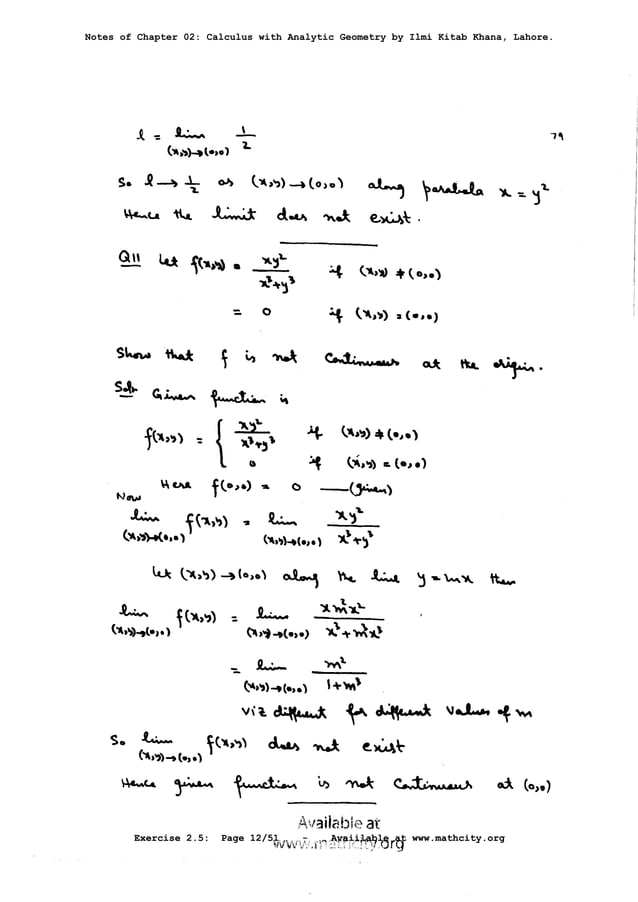 Notes of Chapter 02: Calculus with Analytic Geometry by Ilmi Kitab Khana, Lahore.
79
l = lim (x,y)→(0,0) 1/2
So l → 1/2 as (x,y)→(0,0) along parabola x = y²
Hence the limit does not exist.
Q11 Let f(x,y) = xy²/(x³+y³) if (x,y) ≠ (0,0)
= 0 if (x,y) = (0,0)
Show that f is not Continuous at the origin.
Sol. Given function is
f(x,y) = { xy²/(x³+y³) if (x,y) ≠ (0,0)
0 if (x,y) = (0,0)
Here f(0,0) = 0 —(given)
Now
lim (x,y)→(0,0) f(x,y) = lim (x,y)→(0,0) xy²/(x³+y³)
Let (x,y)→(0,0) along the line y = mx then
lim (x,y)→(0,0) f(x,y) = lim (x,y)→(0,0) x m²x²/(x³+m³x³)
= lim (x,y)→(0,0) m²/(1+m³)
viz different for different values of m
So lim (x,y)→(0,0) f(x,y) does not exist
Hence given function is not Continuous at (0,0)
Available at
Exercise 2.5: Page 12/51 - Available at www.mathcity.org
www.mathcity.org